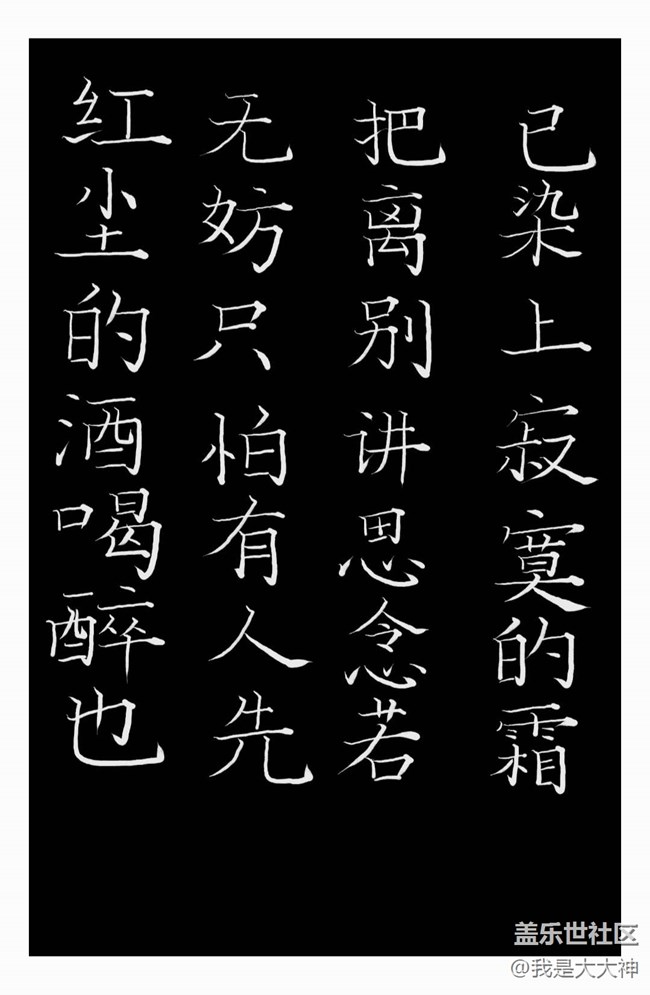 红尘的酒喝醉也
无妨只怕有人先
把离别讲思念若
已染上寂寞的霜
盖乐世社区
@我是大大神